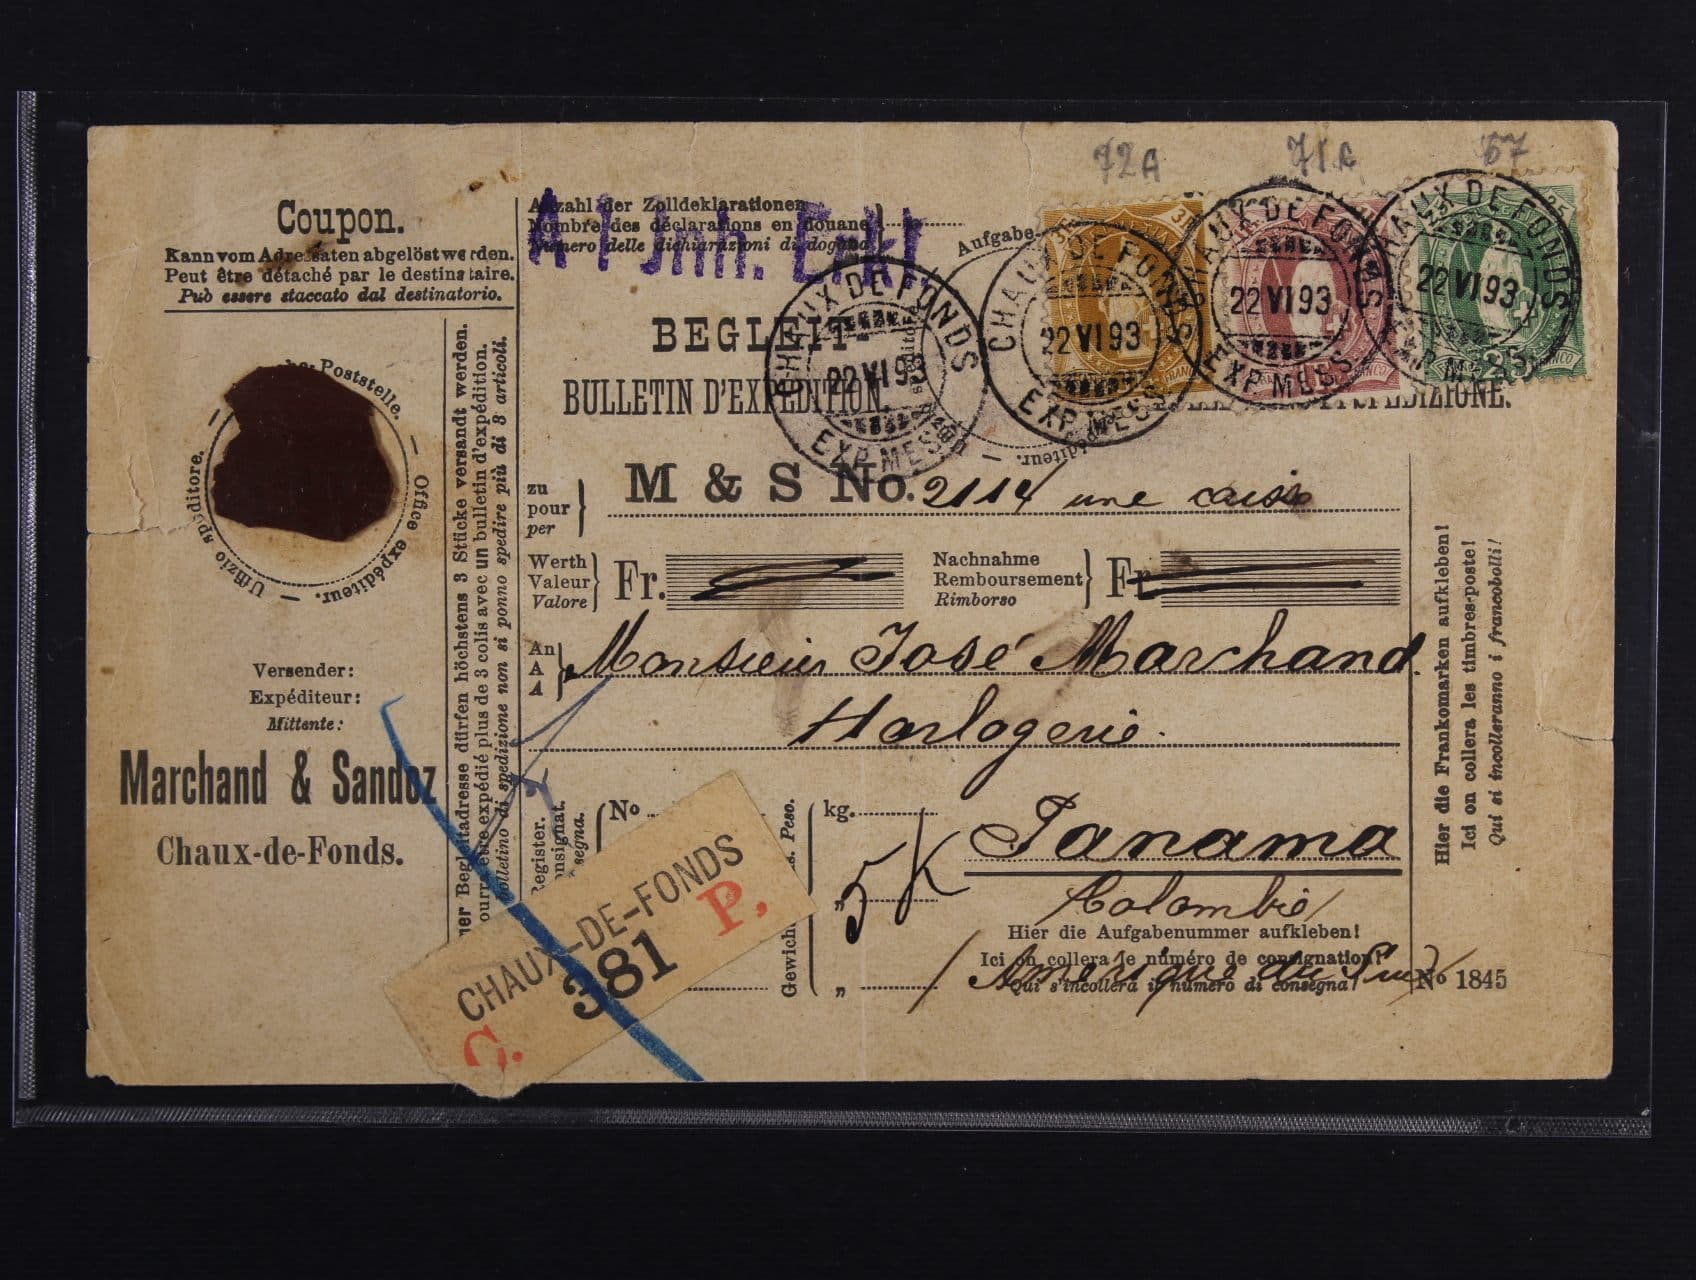 72A 71A 67
Coupon.
Kann vom Adressaten abgelöst werden.
Peut être détaché par le destinataire.
Può essere staccato dal destinatorio.
Poststelle.
Office expéditeur.
Uffizio speditore.
Versender:
Expéditeur:
Mittente:
Marchand & Sandoz
Chaux-de-Fonds.
Begleitadresse dürfen höchstens 3 Stücke versandt werden.
être expédié plus de 3 colis avec un bulletin d'expédition.
bolletino di spedizione non si ponno spedire più di 3 articoli.
Anzahl der Zolldeklarationen
Nombre des déclarations en douane
Numero delle dichiarazioni di dogana
A 1 Inh. Erkl.
Aufgabe
CHAUX DE FONDS
22 VI 93
EXP. MESS.
CHAUX DE FONDS
22 VI 93
EXP. MESS.
CHAUX DE FONDS
22 VI 93
EXP. MESS.
CHAUX DE FONDS
22 VI 93
EXP. MESS.
25
FRANCO
BEGLEIT-
BULLETIN D'EXPÉDITION.
SPEDIZIONE.
zu
pour
per
M & S No. 2114 une caisse
Werth
Valeur
Valore
Fr.
Nachnahme
Remboursement
Rimborso
Fr.
An
A
A
Monsieur José Marchand.
Horlogerie.
Panama
Colombie
Amérique du Sud
Register.
No
Gewicht
Peso.
kg.
5 K
"
"
CHAUX-DE-FONDS
381
C. P.
Hier die Aufgabenummer aufkleben!
Ici on collera le numéro de consignation!
Qui s'incollerà il numero di consegna!
No 1845
Hier die Frankomarken aufkleben!
Ici on collera les timbres-poste!
Qui si incolleranno i francobolli!